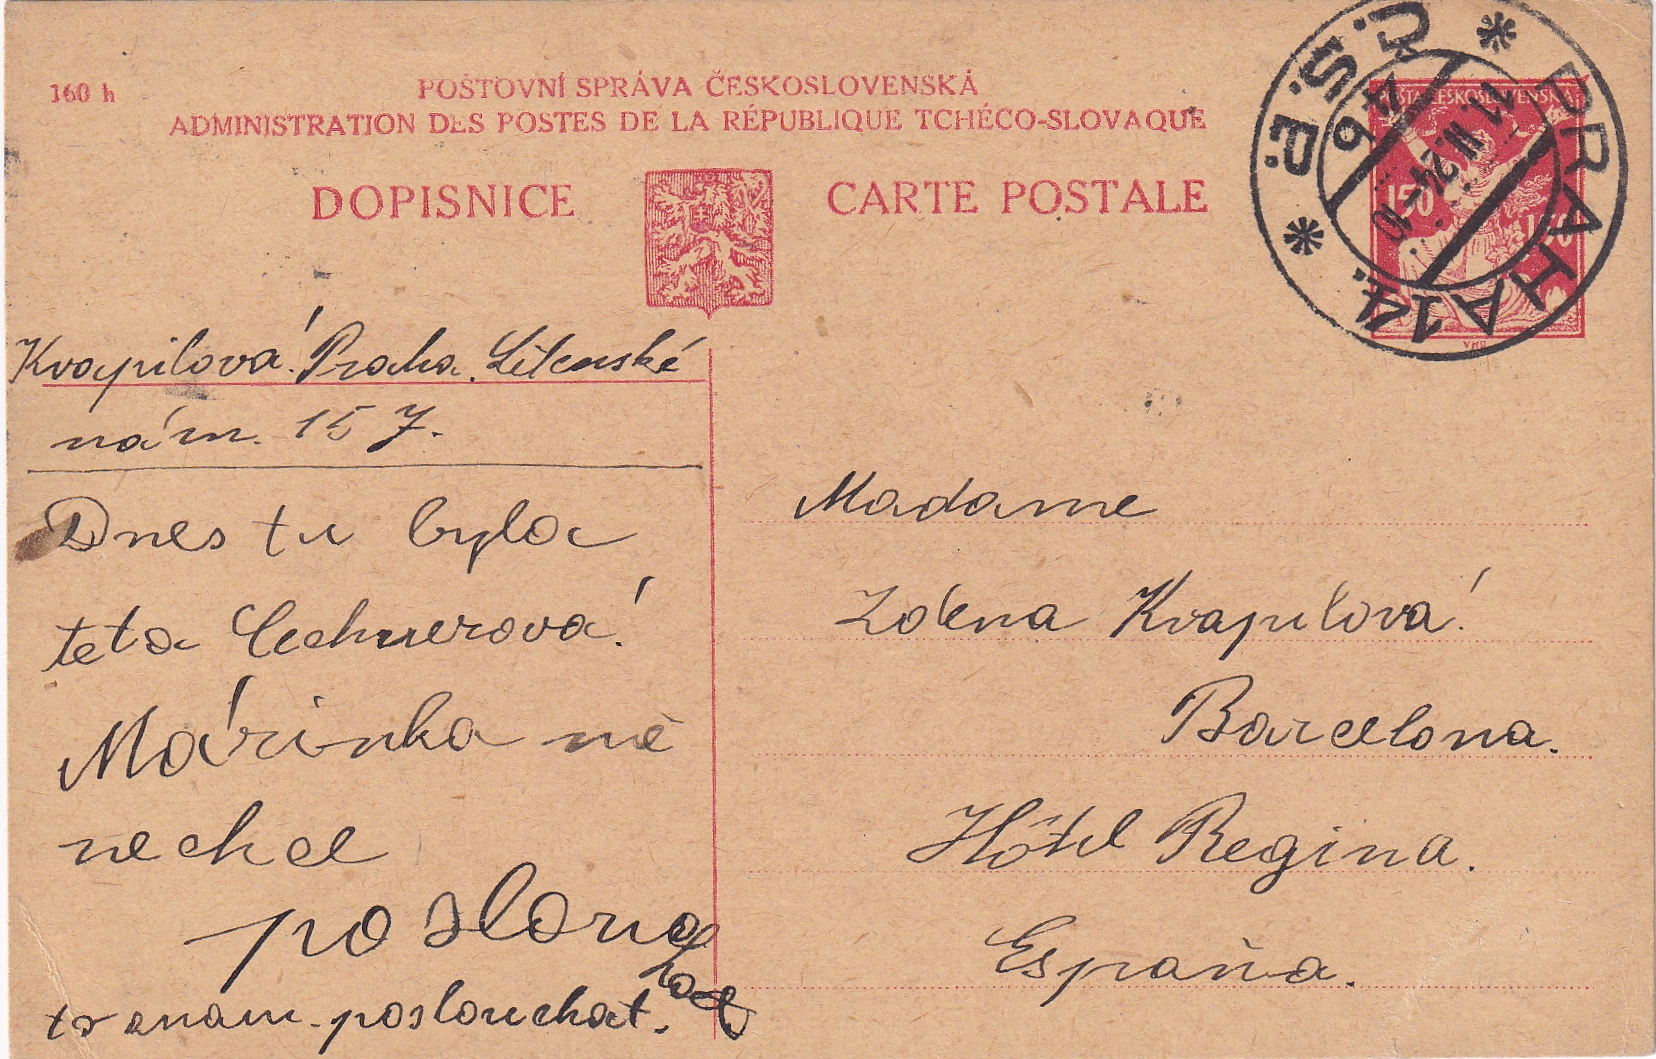 160 h
POŠTOVNÍ SPRÁVA ČESKOSLOVENSKÁ
ADMINISTRATION DES POSTES DE LA RÉPUBLIQUE TCHÉCO-SLOVAQUE
DOPISNICE CARTE POSTALE
POŠTA ČESKOSLOVENSKÁ
150 150
PRAHA 14.
Č.S.P.
Kvapilová. Praha.
nám. 15 7.
Dnes tu byla
teta
Márinka mě
nechce
to znam. poslouchat.
Madame
Zdena Kvapilová
Barcelona.
Hôtel Regina.
España.